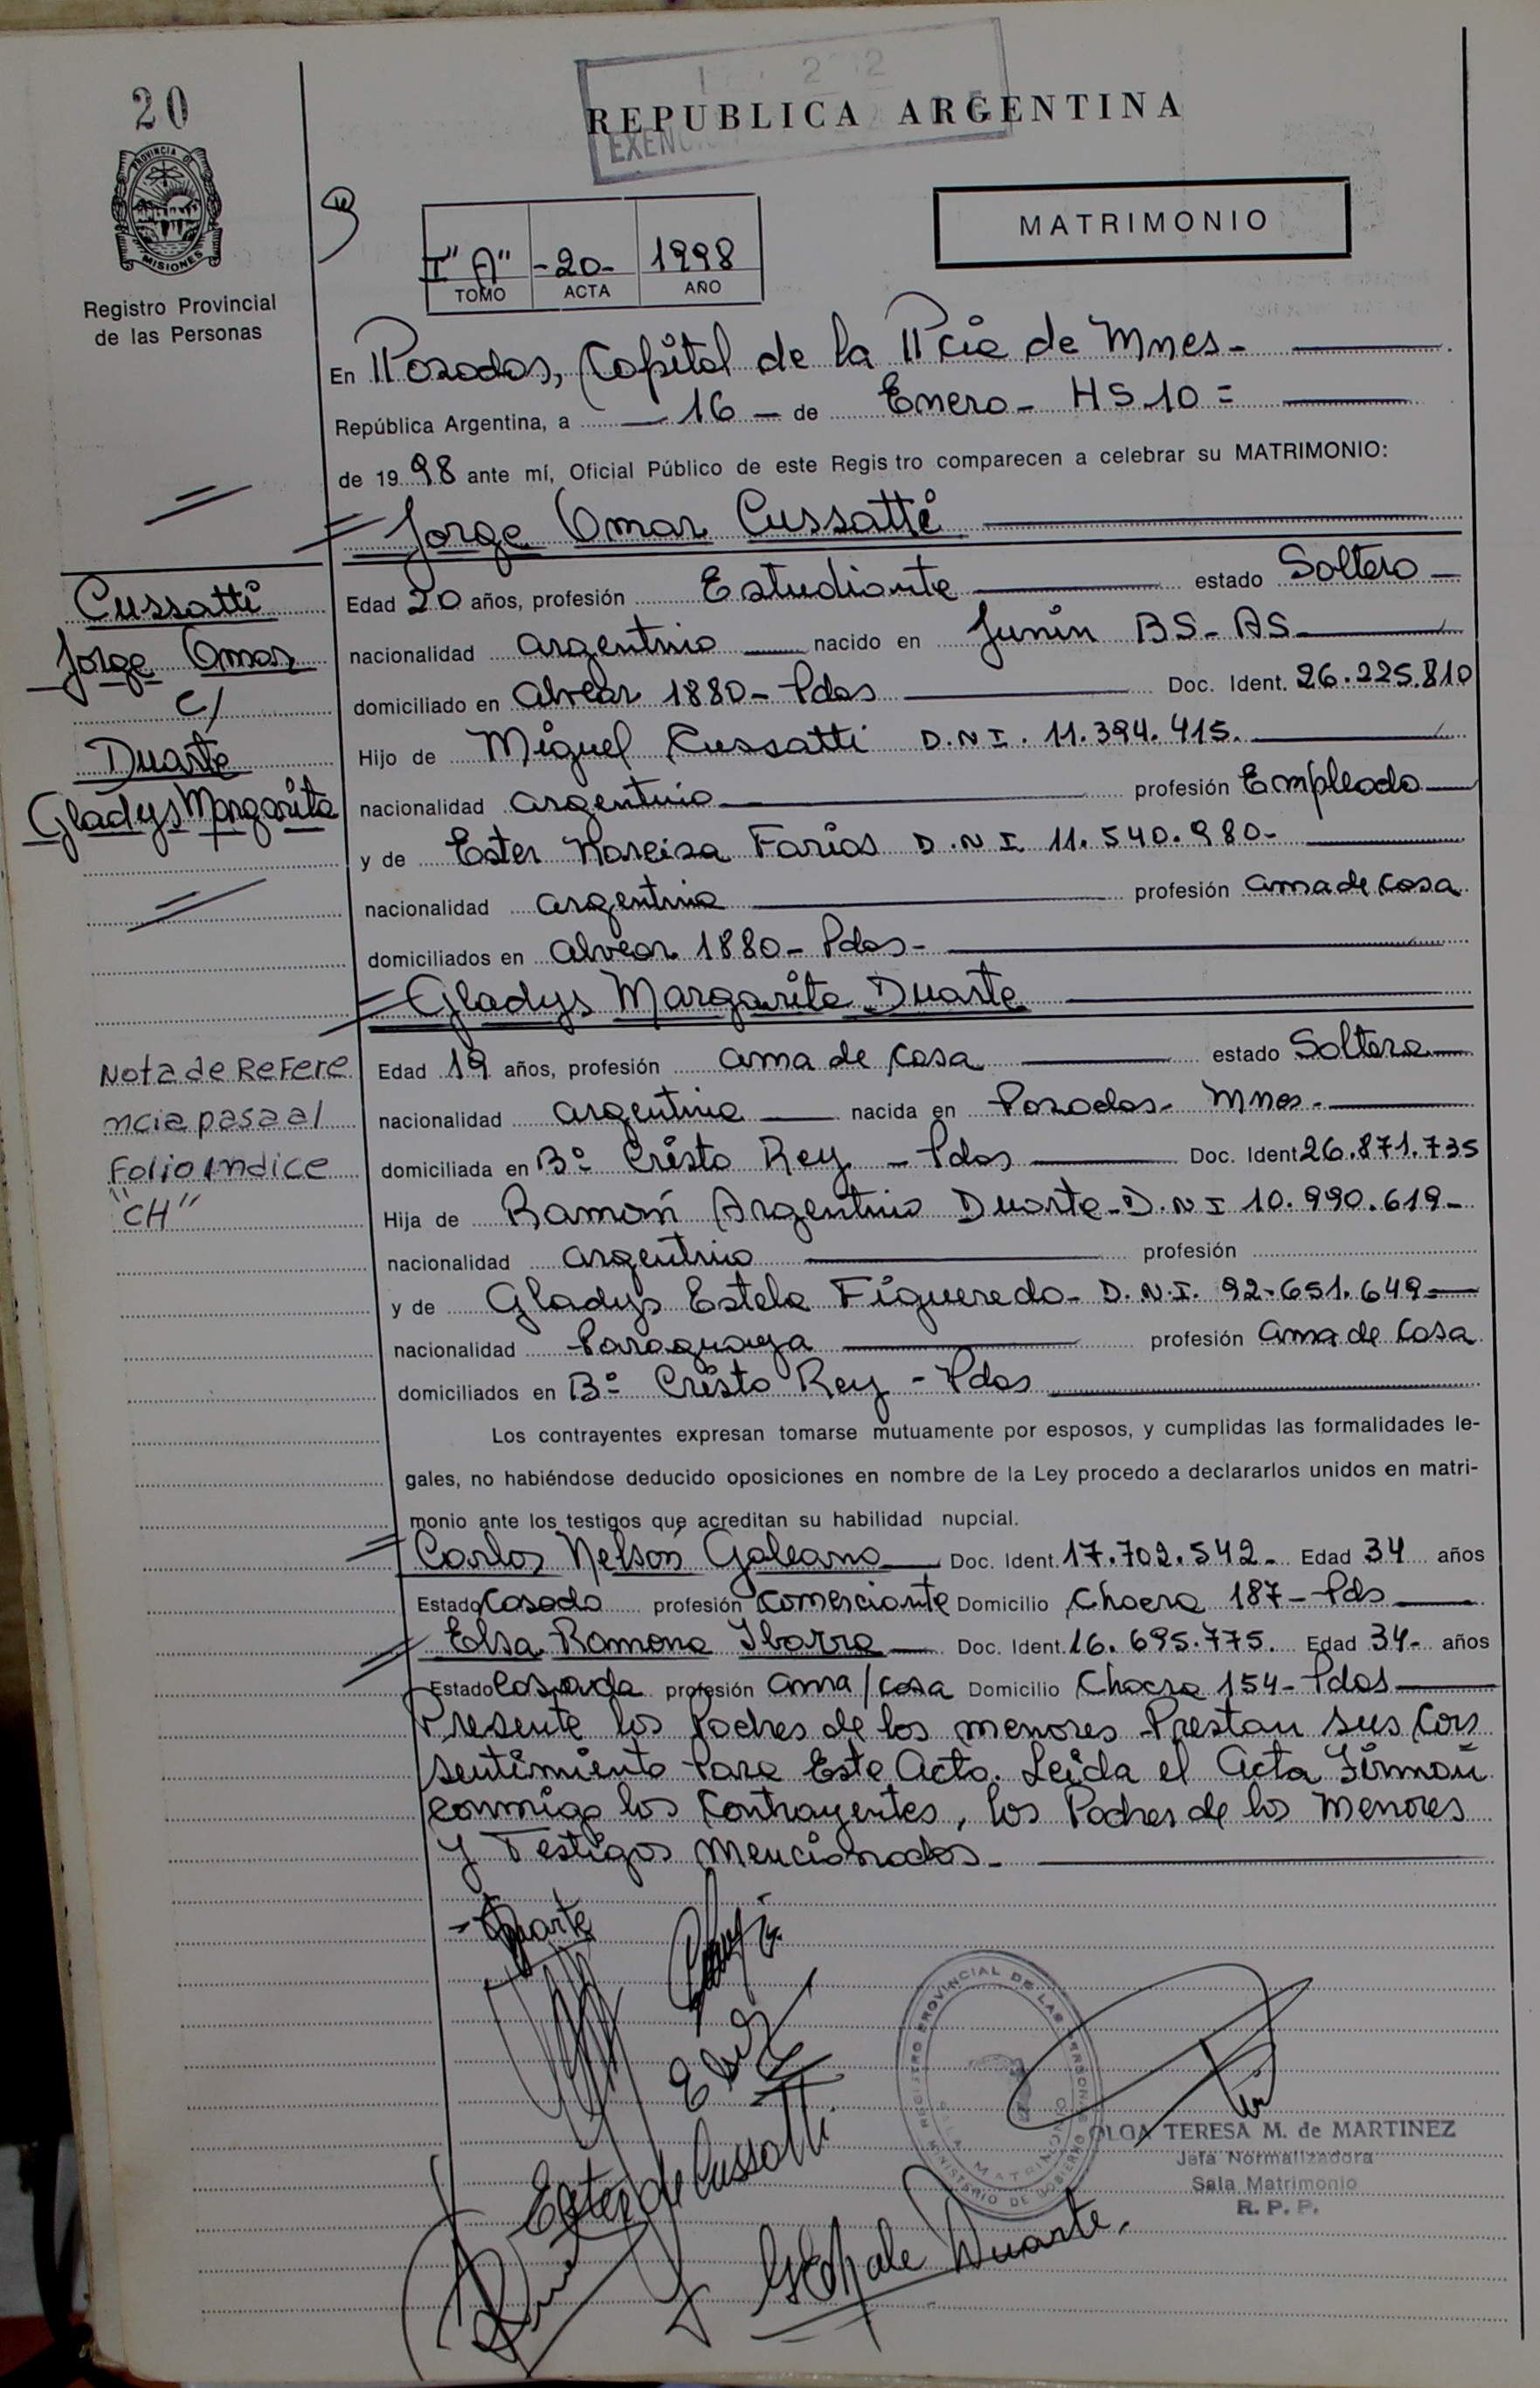 20
REPUBLICA ARGENTINA
PROVINCIA DE
MISIONES
Registro Provincial
de las Personas
MATRIMONIO
I "A" -20- 1998
TOMO ACTA AÑO
En Posadas, Capital de la Pcia de Mnes-
República Argentina, a 16 - de Enero - HS 10 =
de 1998 ante mí, Oficial Público de este Registro comparecen a celebrar su MATRIMONIO:
Jorge Omar Cussatti
Cussatti
Jorge Omar
c/
Duarte
Gladys Margarita
Edad 20 años, profesión Estudiante estado Soltero
nacionalidad argentino nacido en Junin BS-AS
domiciliado en alvear 1880 - Pdas Doc. Ident. 26.225.810
Hijo de Miguel Cussatti D.N.I. 11.394.415.
nacionalidad argentino profesión Empleado
y de Ester Narcisa Farias D.N.I 11.540.980-
nacionalidad argentina profesión ama de casa
domiciliados en alvear 1880 - Pdas-
Gladys Margarita Duarte
Nota de Refere
ncia pasa al
Folio Indice
"CH"
Edad 19 años, profesión ama de casa estado Soltera
nacionalidad argentina nacida en Posadas- Mnes.-
domiciliada en Bº Cristo Rey - Pdas Doc. Ident 26.871.735
Hija de Ramón Argentino Duarte - D.N.I 10.990.619-
nacionalidad argentino profesión
y de Gladys Estela Figueredo - D.N.I. 92-651.649-
nacionalidad Paraguaya profesión ama de casa
domiciliados en Bº Cristo Rey - Pdas
Los contrayentes expresan tomarse mutuamente por esposos, y cumplidas las formalidades le-
gales, no habiéndose deducido oposiciones en nombre de la Ley procedo a declararlos unidos en matri-
monio ante los testigos que acreditan su habilidad nupcial.
Carlos Nelson Galeano Doc. Ident. 17.702.542- Edad 34 años
Estado Casado profesión Comerciante Domicilio Chacra 187 - Pds
Elsa Ramona Ibarra Doc. Ident. 16.695.775. Edad 34- años
Estado Casada profesión ama/casa Domicilio Chacra 154 - Pdas
Presente los Padres de los menores Prestan sus Con
sentimiento Para Este Acto. Leida el Acta Firman
conmigo los Contrayentes, los Padres de los Menores
y Testigos Mencionados-
Duarte
Ester de Cussatti
Duarte.
REGISTRO PROVINCIAL DE LAS PERSONAS
SALA MATRIMONIO
MINISTERIO DE GOBIERNO
OLGA TERESA M. de MARTINEZ
Jefa Normalizadora
Sala Matrimonio
R. P. P.